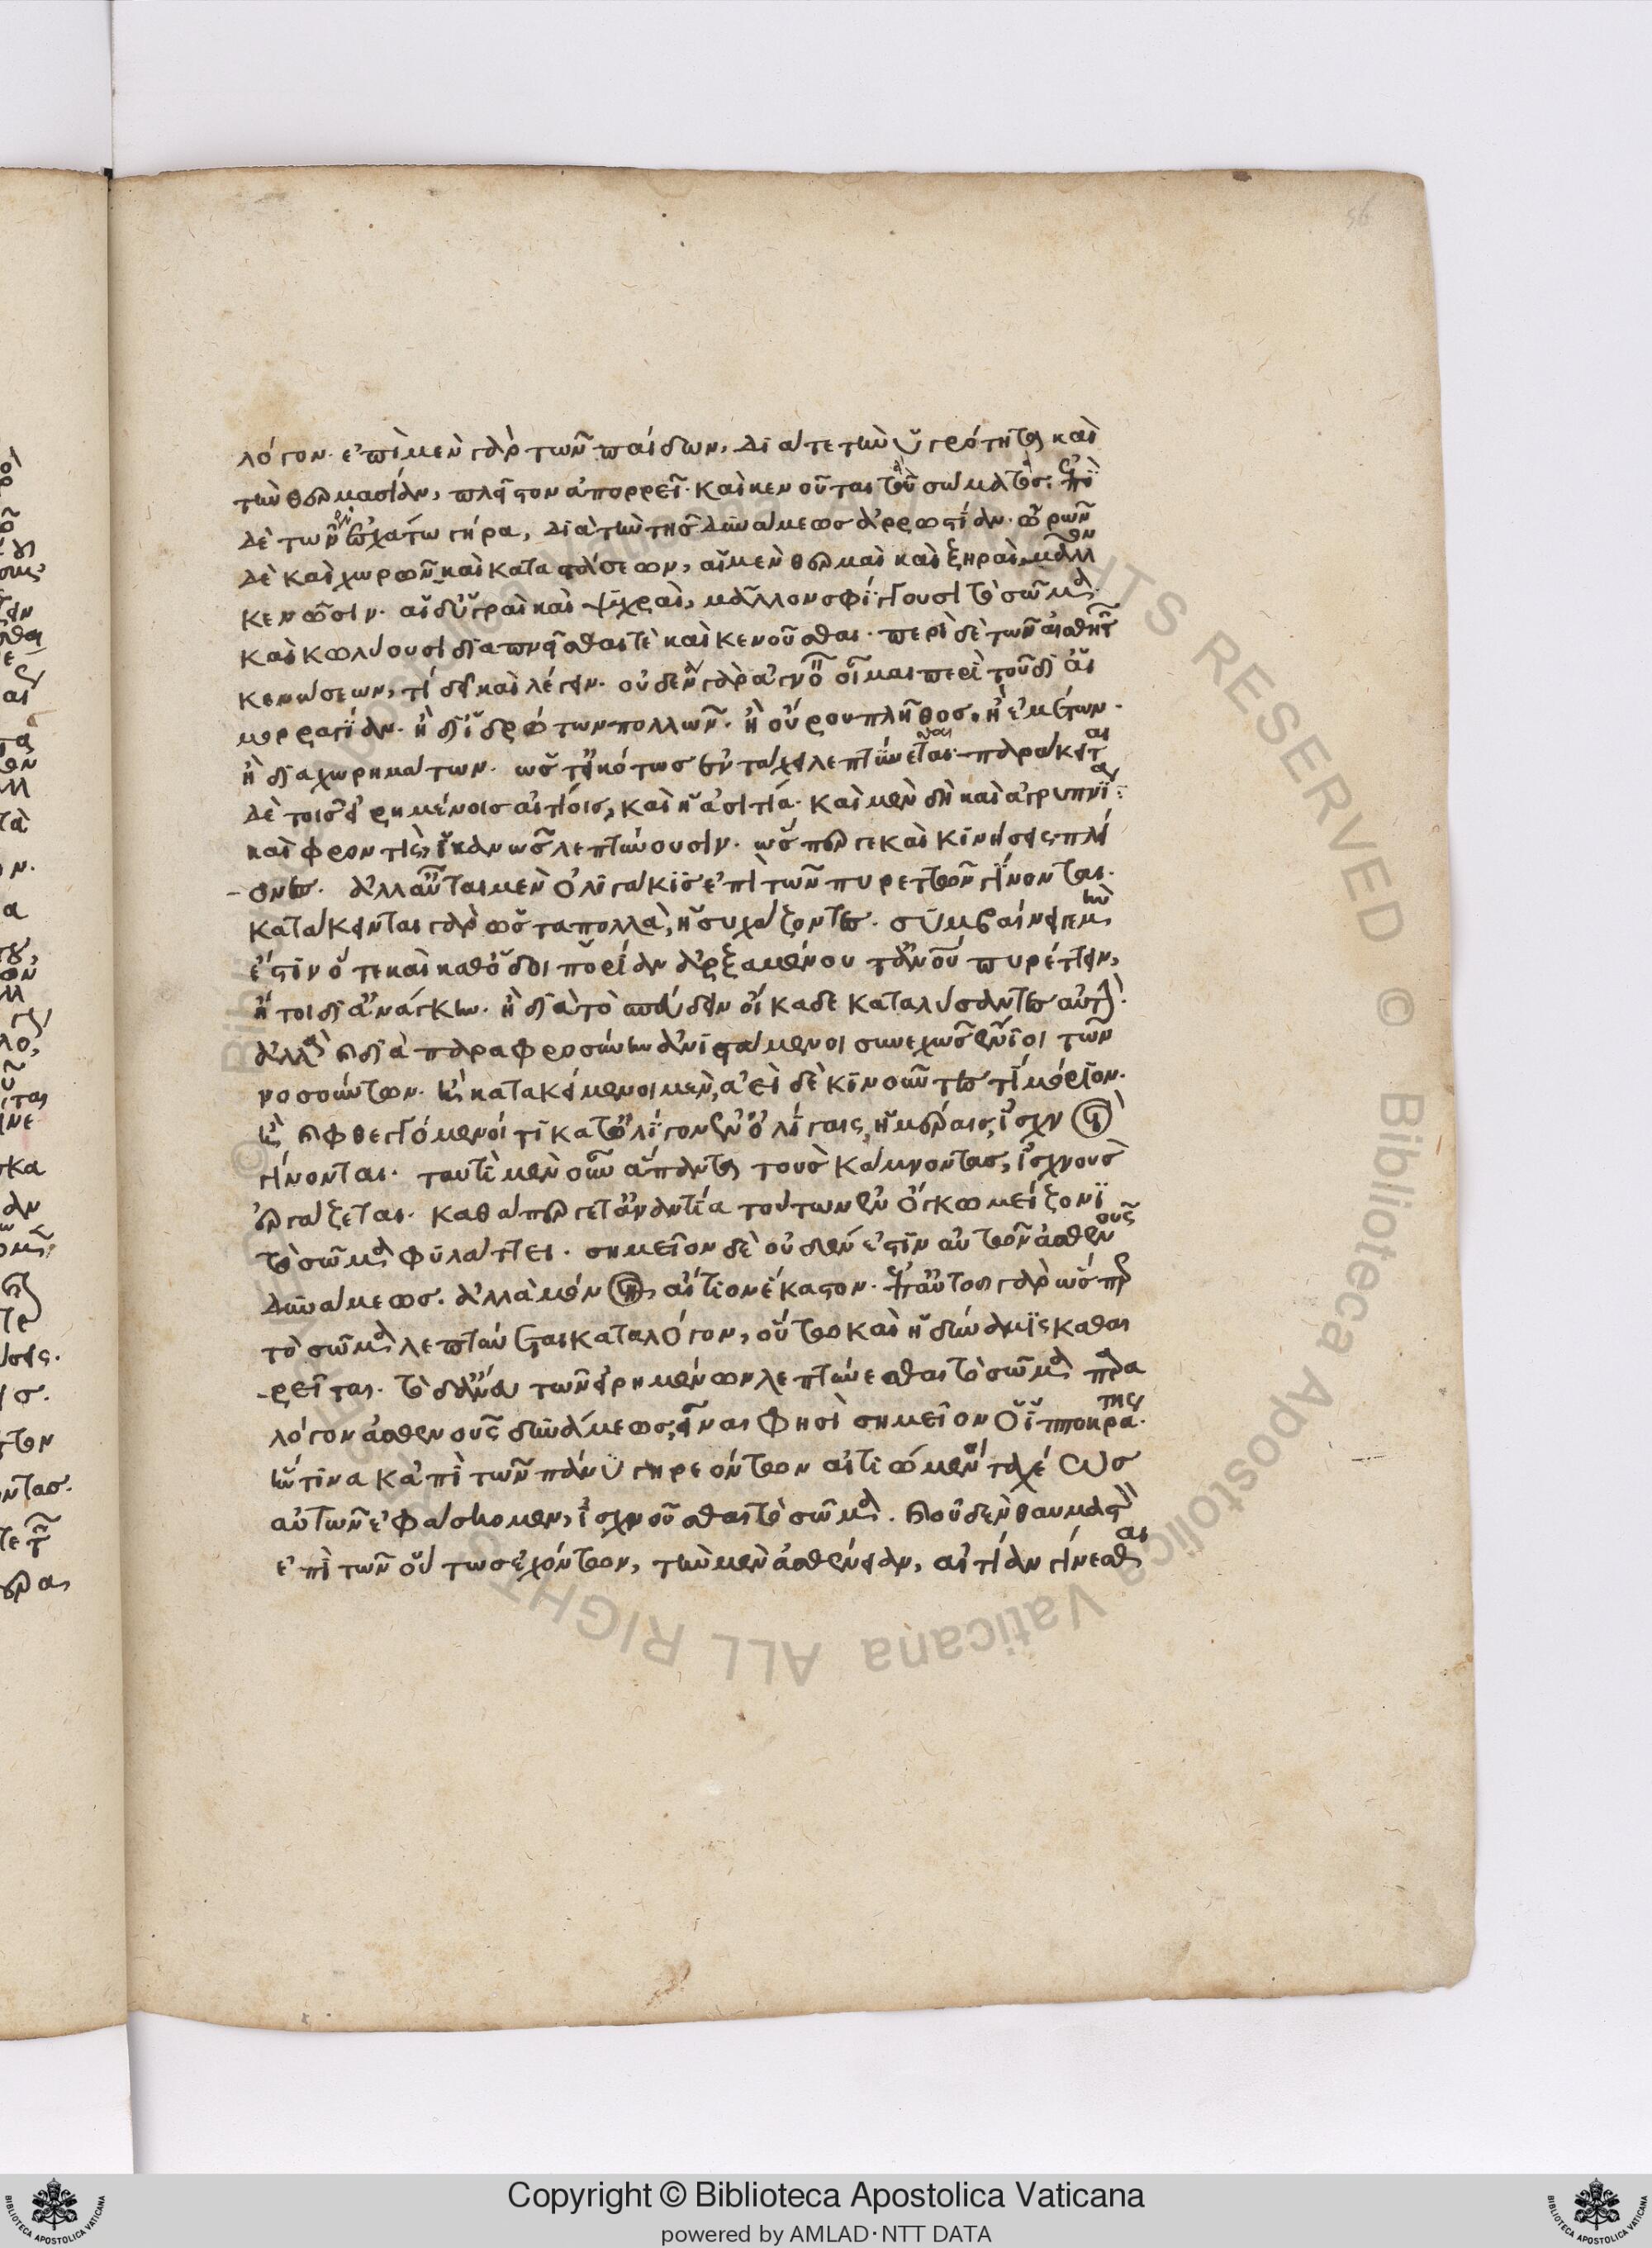 56
λόγον· ἐπὶ μὲν γὰρ τῶν παίδων, διά τε τὴν ὑγρότητα καὶ
τὴν θερμασίαν, πλεῖστον ἀπορρεῖ· καὶ κενοῦται τοῦ σώματος· ἐπὶ
δὲ τῶν ἐσχατογήρων, διὰ τὴν τῆς δυνάμεως ἀρρωστίαν· ὡρῶν
δὲ καὶ χωρῶν καὶ καταστάσεων, αἱ μὲν θερμαὶ καὶ ξηραὶ, μᾶλλον
κενῶσιν· αἱ δ' ὑγραὶ καὶ ψυχραὶ, μᾶλλον σφίγγουσι τὸ σῶμα·
καὶ κωλύουσι διαπνεῖσθαί τε καὶ κενοῦσθαι· περὶ δὲ τῶν αἰσθητῶν
κενώσεων, τί δεῖ καὶ λέγειν· οὐδένα γὰρ ἀγνοεῖν οἶμαι περὶ τοῦ δι' αἱ
μορραγίαν· ἢ δι' ἱδρώτων πολλῶν· ἢ οὔρου πλῆθος· ἢ ἐμέτων·
ἢ διαχωρημάτων· ὡς τεικότως ἐν τάχει λεπτύνεσθαι· πρόσκειται
δὲ τοῖς εἰρημένοις αἰτίοις, καὶ ἡ ἀσιτία· καὶ μὲν δὴ καὶ ἀγρυπνίαι
καὶ φροντὶς, ἱκανῶς λεπτύνουσιν· ὥσπερ γε καὶ κινήσεις πλεί
ονες· ἀλλ' αὗται μὲν ὀλιγάκις ἐπὶ τῶν πυρετῶν γίνονται·
κατάκεινται γὰρ ὡς τὰ πολλὰ, ἡσυχάζοντες· συμβαίνει μὴν
ἔστιν ὅτε καὶ καθ' ὁδοιπορίαν ἀρξαμένου τινὸς πυρέττειν,
ἤτοι δι' ἀνάγκην· ἢ διὰ τὸ σπεύδειν οἴκαδε καταλύσαντες αὐτὴν·
ἀλλὰ καὶ διὰ παραφροσύνην ἀνιστάμενοι συνεχῶς ἔνιοι τῶν
νοσούντων· ἢ κατακείμενοι μὲν, ἀεὶ δὲ κινοῦντες τὶ μόριον·
ἢ καὶ φθεγγόμενοί τι κατ' ὀλίγον ἐν ὀλίγαις ἡμέραις, ἰσχνοὶ
γίνονται· ταυτὶ μὲν οὖν ἅπαντα τοὺς κάμνοντας, ἰσχνοὺς
ἐργάζεται· καθάπερ γε τἀναντία τούτων ἐν ὄγκῳ μείζονι
τὸ σῶμα φυλάττει· σημεῖον δὲ οὐδέν ἐστιν αὐτῶν ἀσθενοῦς
δυνάμεως· ἀλλὰ μὲν αἴτιον ἕκαστον· γὰρ ὥσπερ
τὸ σῶμα λεπτύνεται κατὰ λόγον, οὕτω καὶ ἡ δύναμις καθαι
ρεῖται· τὸ δ' ἄνευ τῶν εἰρημένων λεπτύνεσθαι τὸ σῶμα παρὰ
λόγον ἀσθενοῦς δυνάμεως, εἶναι φησὶ σημεῖον ὁ Ἱπποκράτης·
ἥντινα κἀπὶ τῶν πάνυ γηρεόντων αἰτιώμενοι ταχέως
αὐτῶν ἐφάσκομεν, ἰσχνοῦσθαι τὸ σῶμα· καὶ οὐδὲν θαυμαστὸν
ἐπὶ τῶν οὕτως ἐχόντων, τὴν μὲν ἀσθένειαν, αἰτίαν γίνεσθαι
Copyright © Biblioteca Apostolica Vaticana
powered by AMLAD·NTT DATA